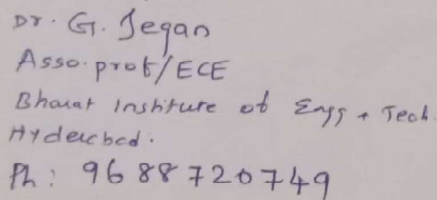 Dr. G. Jegan
Asso. prof/ECE
Bharat Institute of Engg + Tech.
Hyderabad.
Ph: 9688720749